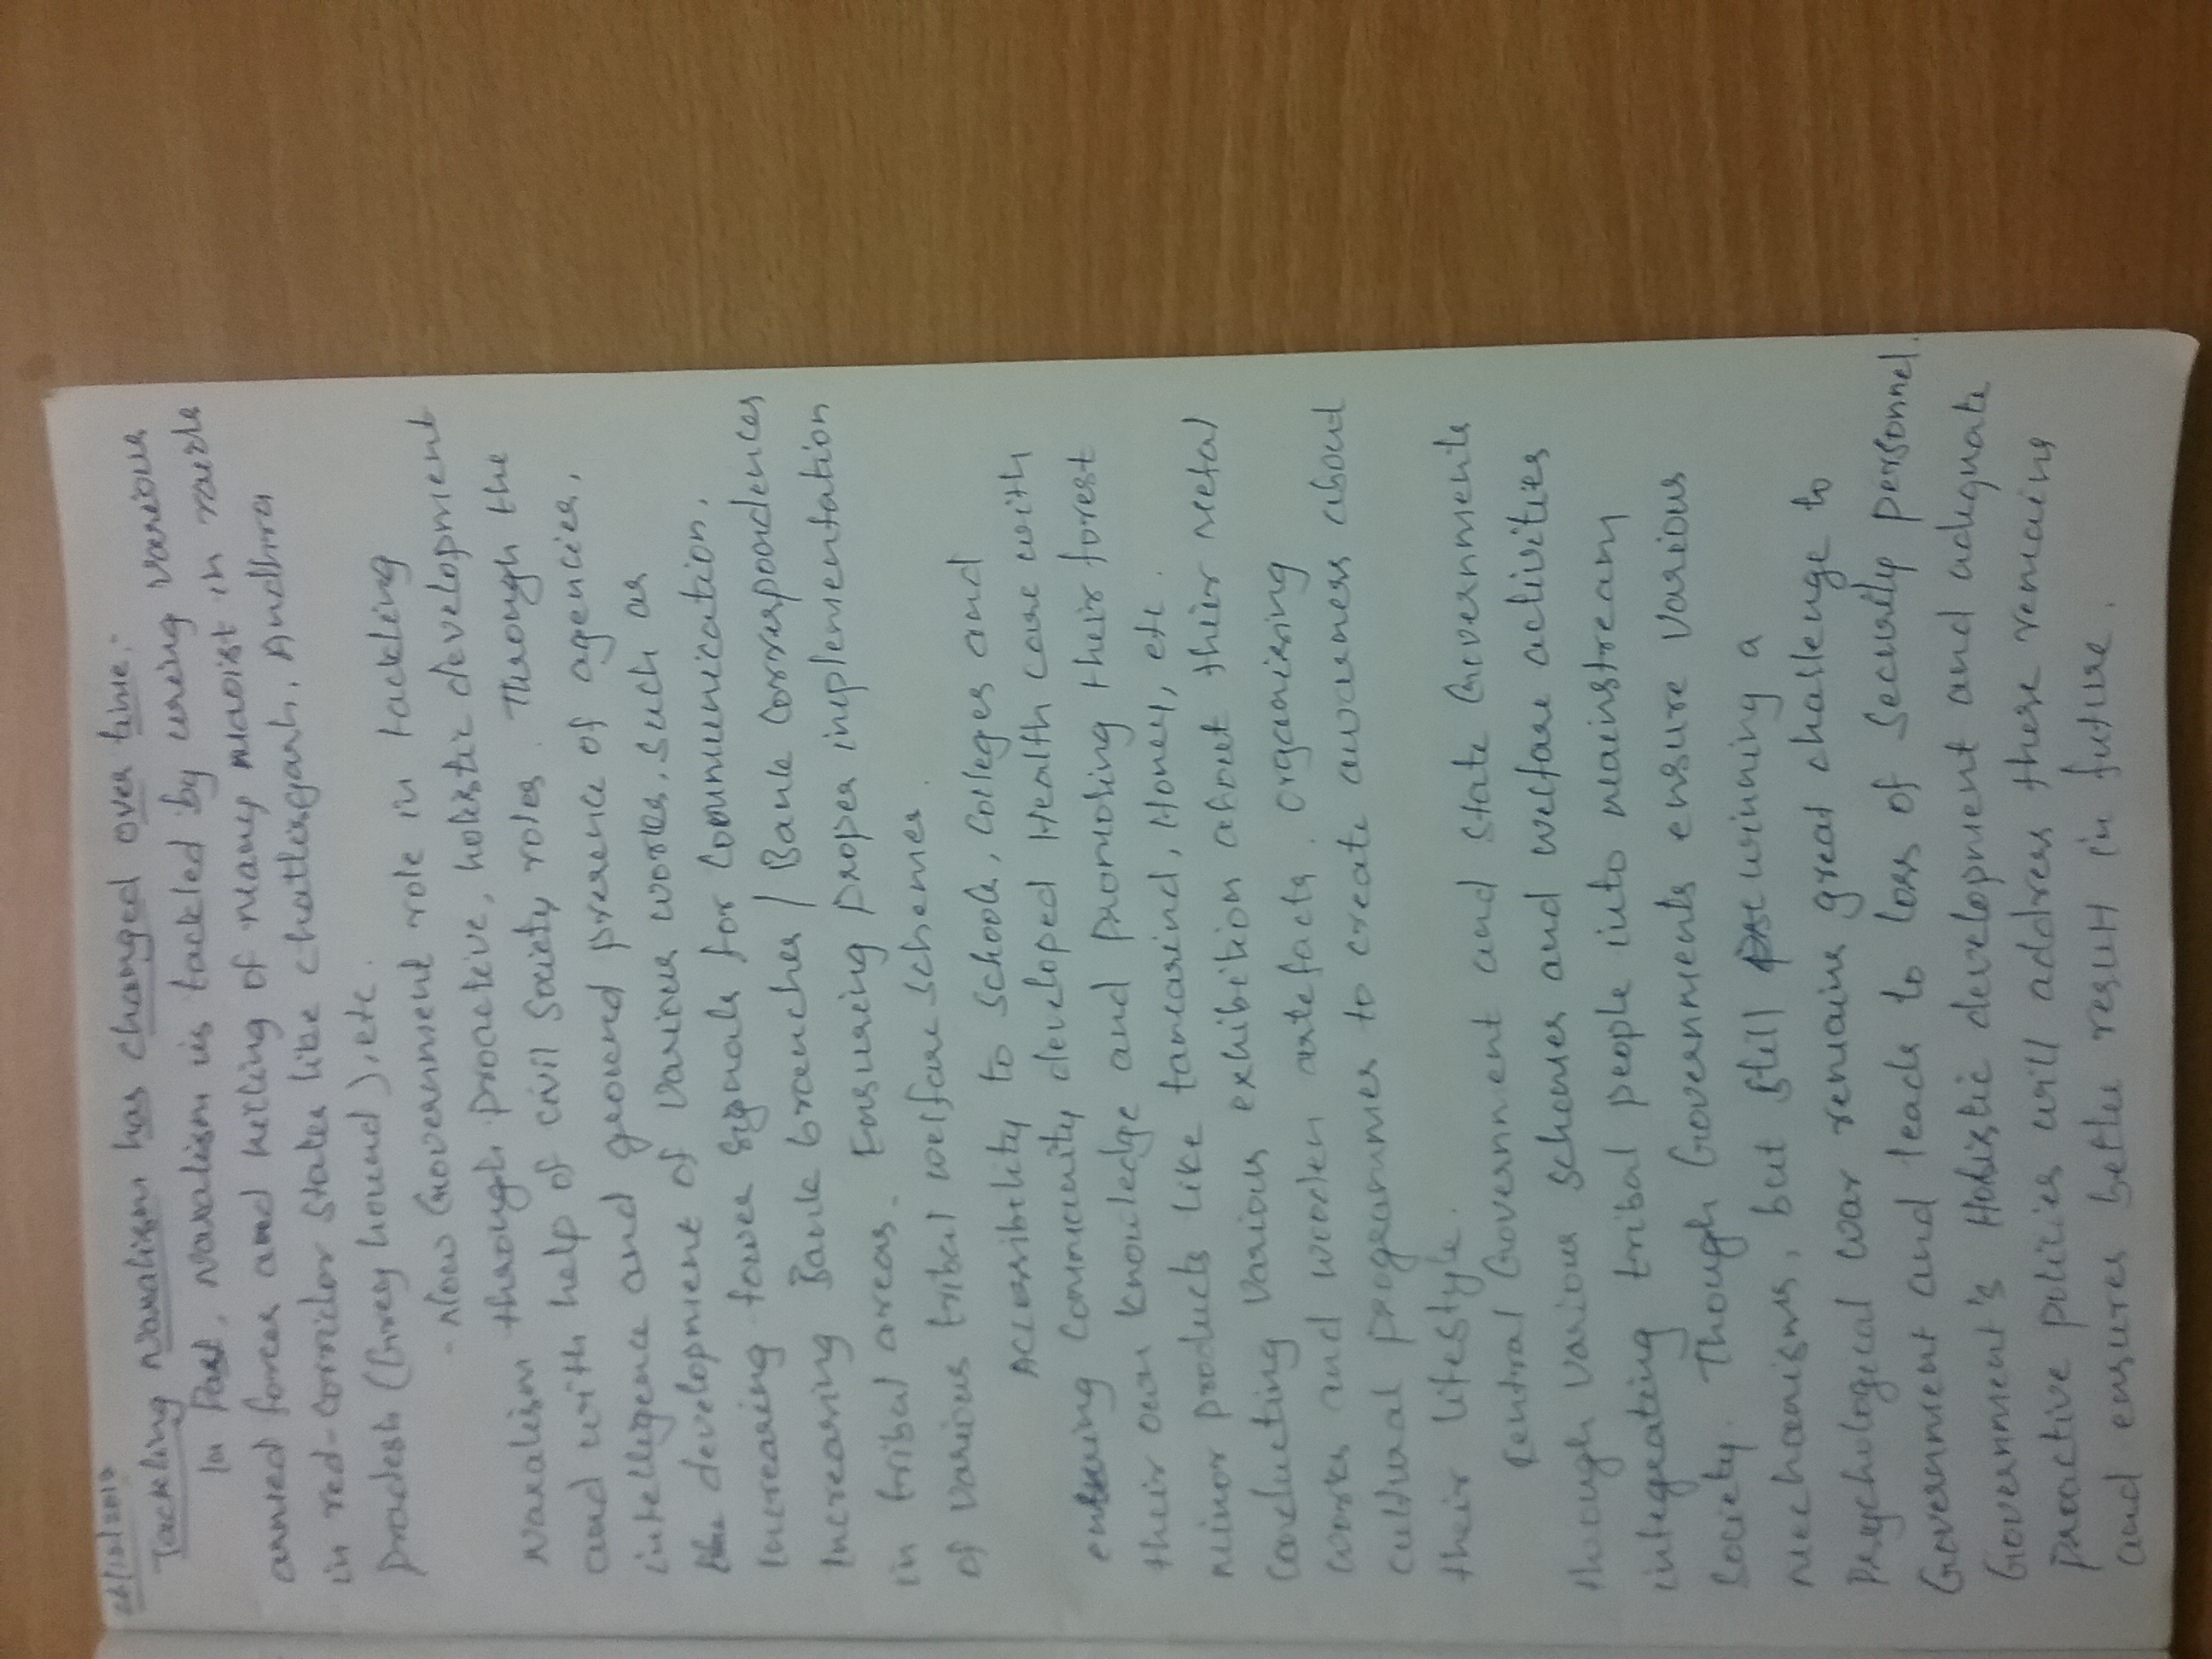 Tackling naxalism has changed over time:-
In Past, naxalism is tackled by using various
armed forces and killing of many maoist in raids
in red-corridor states like chattisgarh, Andhra
pradesh (Grey hound), etc.
- Now Government role in tackling
naxalism through proactive, holistic development
and with help of civil society roles. Through the
intelligence and ground presence of agencies,
development of various works, such as
Increasing tower signals for communication,
Increasing Bank branches / Bank correspondences
in tribal areas. Ensuring proper implementation
of various tribal welfare schemes.
Accessibility to schools, colleges and
ensuring community developed Health care with
their own knowledge and promoting their forest
minor products like tamarind, Honey, etc.
Conducting various exhibition about thier metal
works and wooden artefacts. Organising
cultural programmes to create awareness about
their lifestyle.
Central Government and State Governments
through various schemes and welfare activities
integrating tribal people into mainstream
society. Though Governments ensure various
mechanisms, but still winining a
Psychological war remains great challenge to
Government and leads to loss of security personnel.
Government's Holistic development and adequate
proactive policies will address these remains
and ensures better result in future.